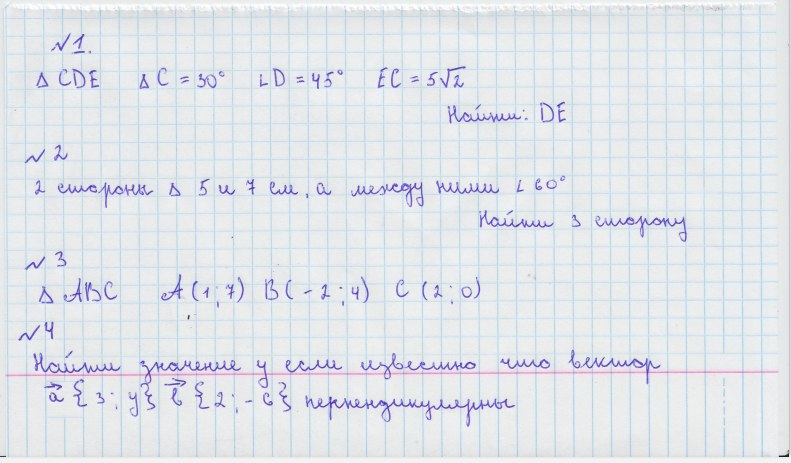 №1.
Δ CDE Δ C = 30° ∟D = 45° EC = 5√2
Найти: DE
№ 2
2 стороны Δ 5 и 7 см, а между ними ∟60°
Найти 3 сторону
№ 3
Δ ABC A (1; 7) B (-2; 4) C (2; 0)
№4
Найти значение y если известно что вектор
a {3; y} b {2; -6} перпендикулярны